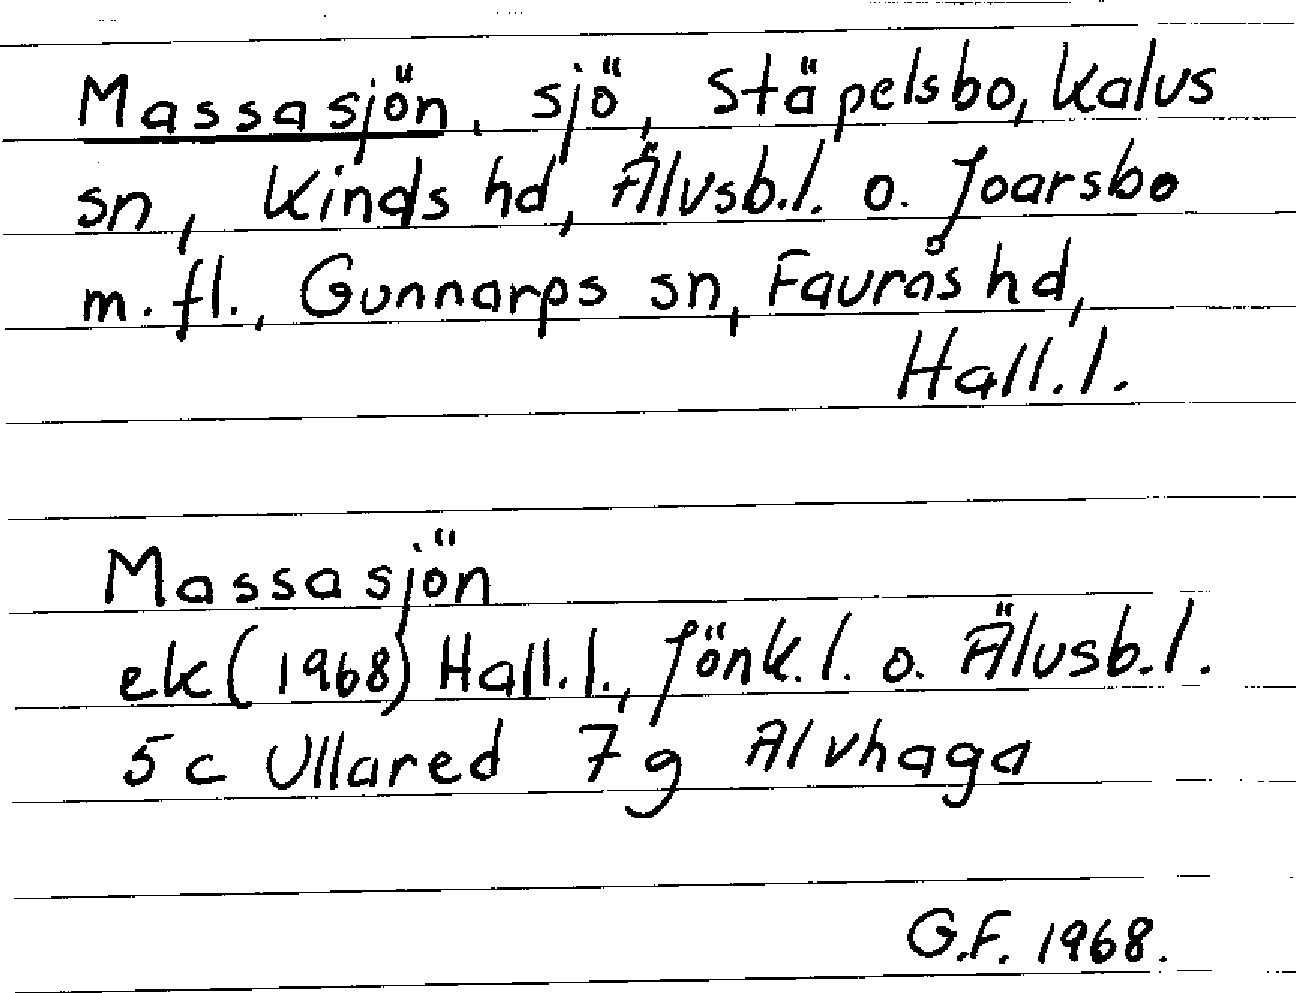 Massasjön, sjö, Stäpelsbo, Kalvs
sn, Kinds hd, Älvsb.l. o. Joarsbo
m. fl., Gunnarps sn, Faurås hd,
Hall.l.
Massasjön
ek (1968) Hall.l., Jönk.l. o. Älvsb.l.
5c Ullared 7g Älvhaga
G.F. 1968.